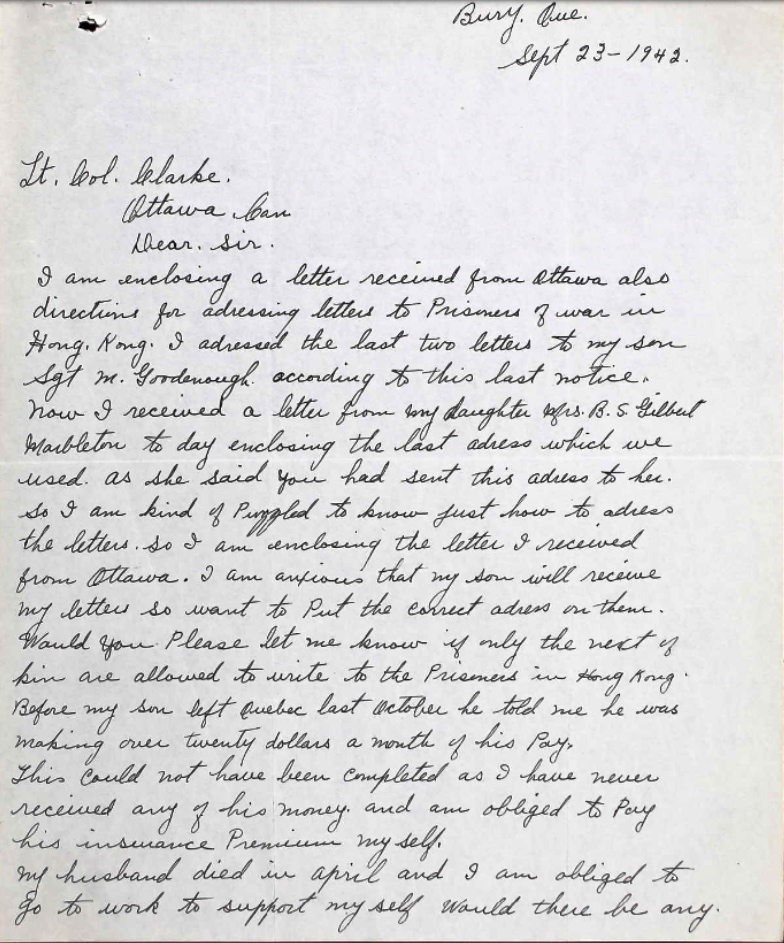 Bury. Que.
Sept 23-1942.
Lt. Col. Clarke.
Ottawa. Can
Dear. Sir.
I am enclosing a letter received from Ottawa also
directions for adressing letters to Prisoners of war in
Hong. Kong. I adressed the last two letters to my son
Sgt M. Goodenough. according to this last notice.
Now I received a letter from my daughter Mrs. B. S. Gilbert
Marbleton to day enclosing the last adress which we
used. as she said you had sent this adress to her.
So I am kind of Puzzled to know just how to adress
the letters. so I am enclosing the letter I received
from Ottawa. I am anxious that my son will receive
my letters so want to Put the correct adress on them.
Would you Please let me know if only the next of
kin are allowed to write to the Prisoners in Hong Kong.
Before my son left Quebec last October he told me he was
making over twenty dollars a month of his Pay.
This could not have been completed as I have never
received any of his money. and am obliged to Pay
his insurance Premium my self.
My husband died in april and I am obliged to
go to work to support my self Would there be any.